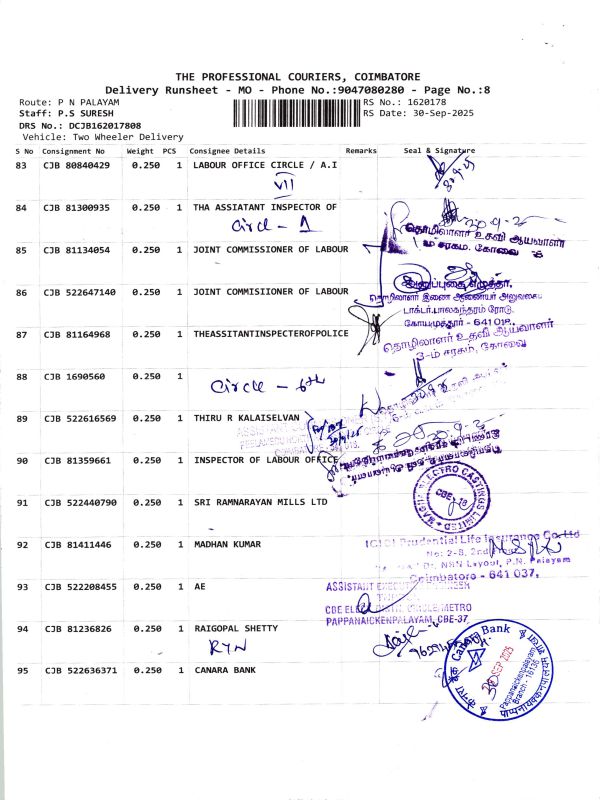 THE PROFESSIONAL COURIERS, COIMBATORE
Delivery Runsheet - MO - Phone No.:9047080280 - Page No.:8
Route: P N PALAYAM
RS No.: 1620178
Staff: P.S SURESH
RS Date: 30-Sep-2025
DRS No.: DCJB162017808
Vehicle: Two Wheeler Delivery
S No Consignment No Weight PCS Consignee Details Remarks Seal & Signature
83 CJB 80840429 0.250 1 LABOUR OFFICE CIRCLE / A.I
VII
84 CJB 81300935 0.250 1 THA ASSIATANT INSPECTOR OF
Circl - 1
தொழிலாளர் உதவி ஆய்வாளர்
கோவை
85 CJB 81134054 0.250 1 JOINT COMMISSIONER OF LABOUR
86 CJB 522647140 0.250 1 JOINT COMMISSIONER OF LABOUR
தொழிலாளர் இணை ஆணையர்
டாக்டர்.பாலசுந்தரம் ரோடு,
கோயமுத்தூர் - 641 018.
87 CJB 81164968 0.250 1 THEASSITANTINSPECTEROFPOLICE
தொழிலாளர் உதவி ஆய்வாளர்
3-ம் சரகம், கோவை
88 CJB 1690560 0.250 1
Circle - 6th
89 CJB 522616569 0.250 1 THIRU R KALAISELVAN
90 CJB 81359661 0.250 1 INSPECTOR OF LABOUR OFFICE
91 CJB 522440790 0.250 1 SRI RAMNARAYAN MILLS LTD
ELECTRO CASTINGS LIMITED
CBE - 18
92 CJB 81411446 0.250 1 MADHAN KUMAR
ICICI Prudential Life Insurance Co. Ltd
No: 2-8, 2nd Floor
NSN Layout, P.N. Palayam
Coimbatore - 641 037.
93 CJB 522208455 0.250 1 AE
ASSISTANT
CBE METRO
PAPPANAICKENPALAYAM, CBE-37
94 CJB 81236826 0.250 1 RAIGOPAL SHETTY
RYN
95 CJB 522636371 0.250 1 CANARA BANK
Canara Bank
30 SEP 2025
Pappanaickenpalayam
Branch - 16136